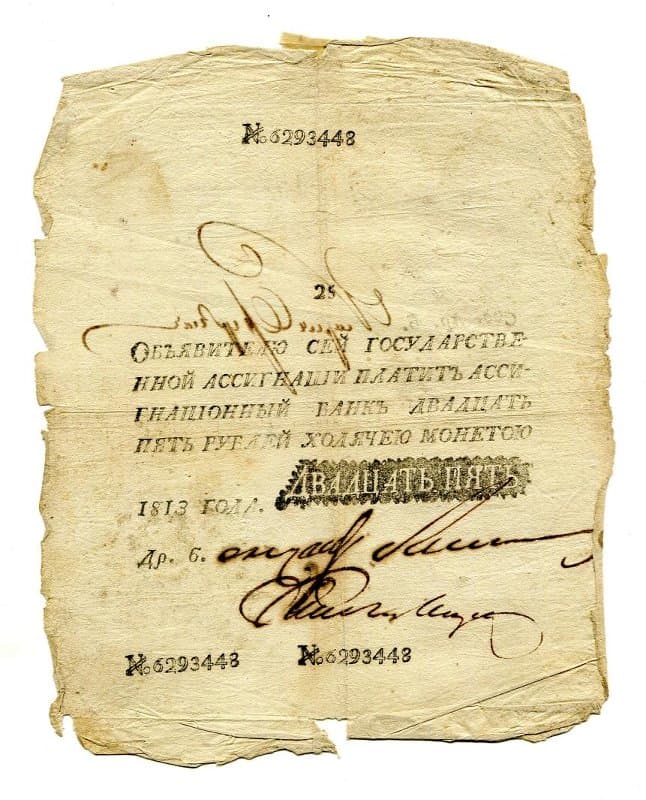 №6293448
25
ОБЪЯВИТЕЛЮ СЕЙ ГОСУДАРСТВЕ-
ННОЙ АССИГНАЦІИ ПЛАТИТЪ АССИ-
ГНАЦІОННЫЙ БАНКЪ ДВАДЦАТЬ
ПЯТЬ РУБЛЕЙ ХОДЯЧЕЮ МОНЕТОЮ
ДВАДЦАТЬ ПЯТЬ
1813 ГОДА.
Др. б.
№6293448 №6293448